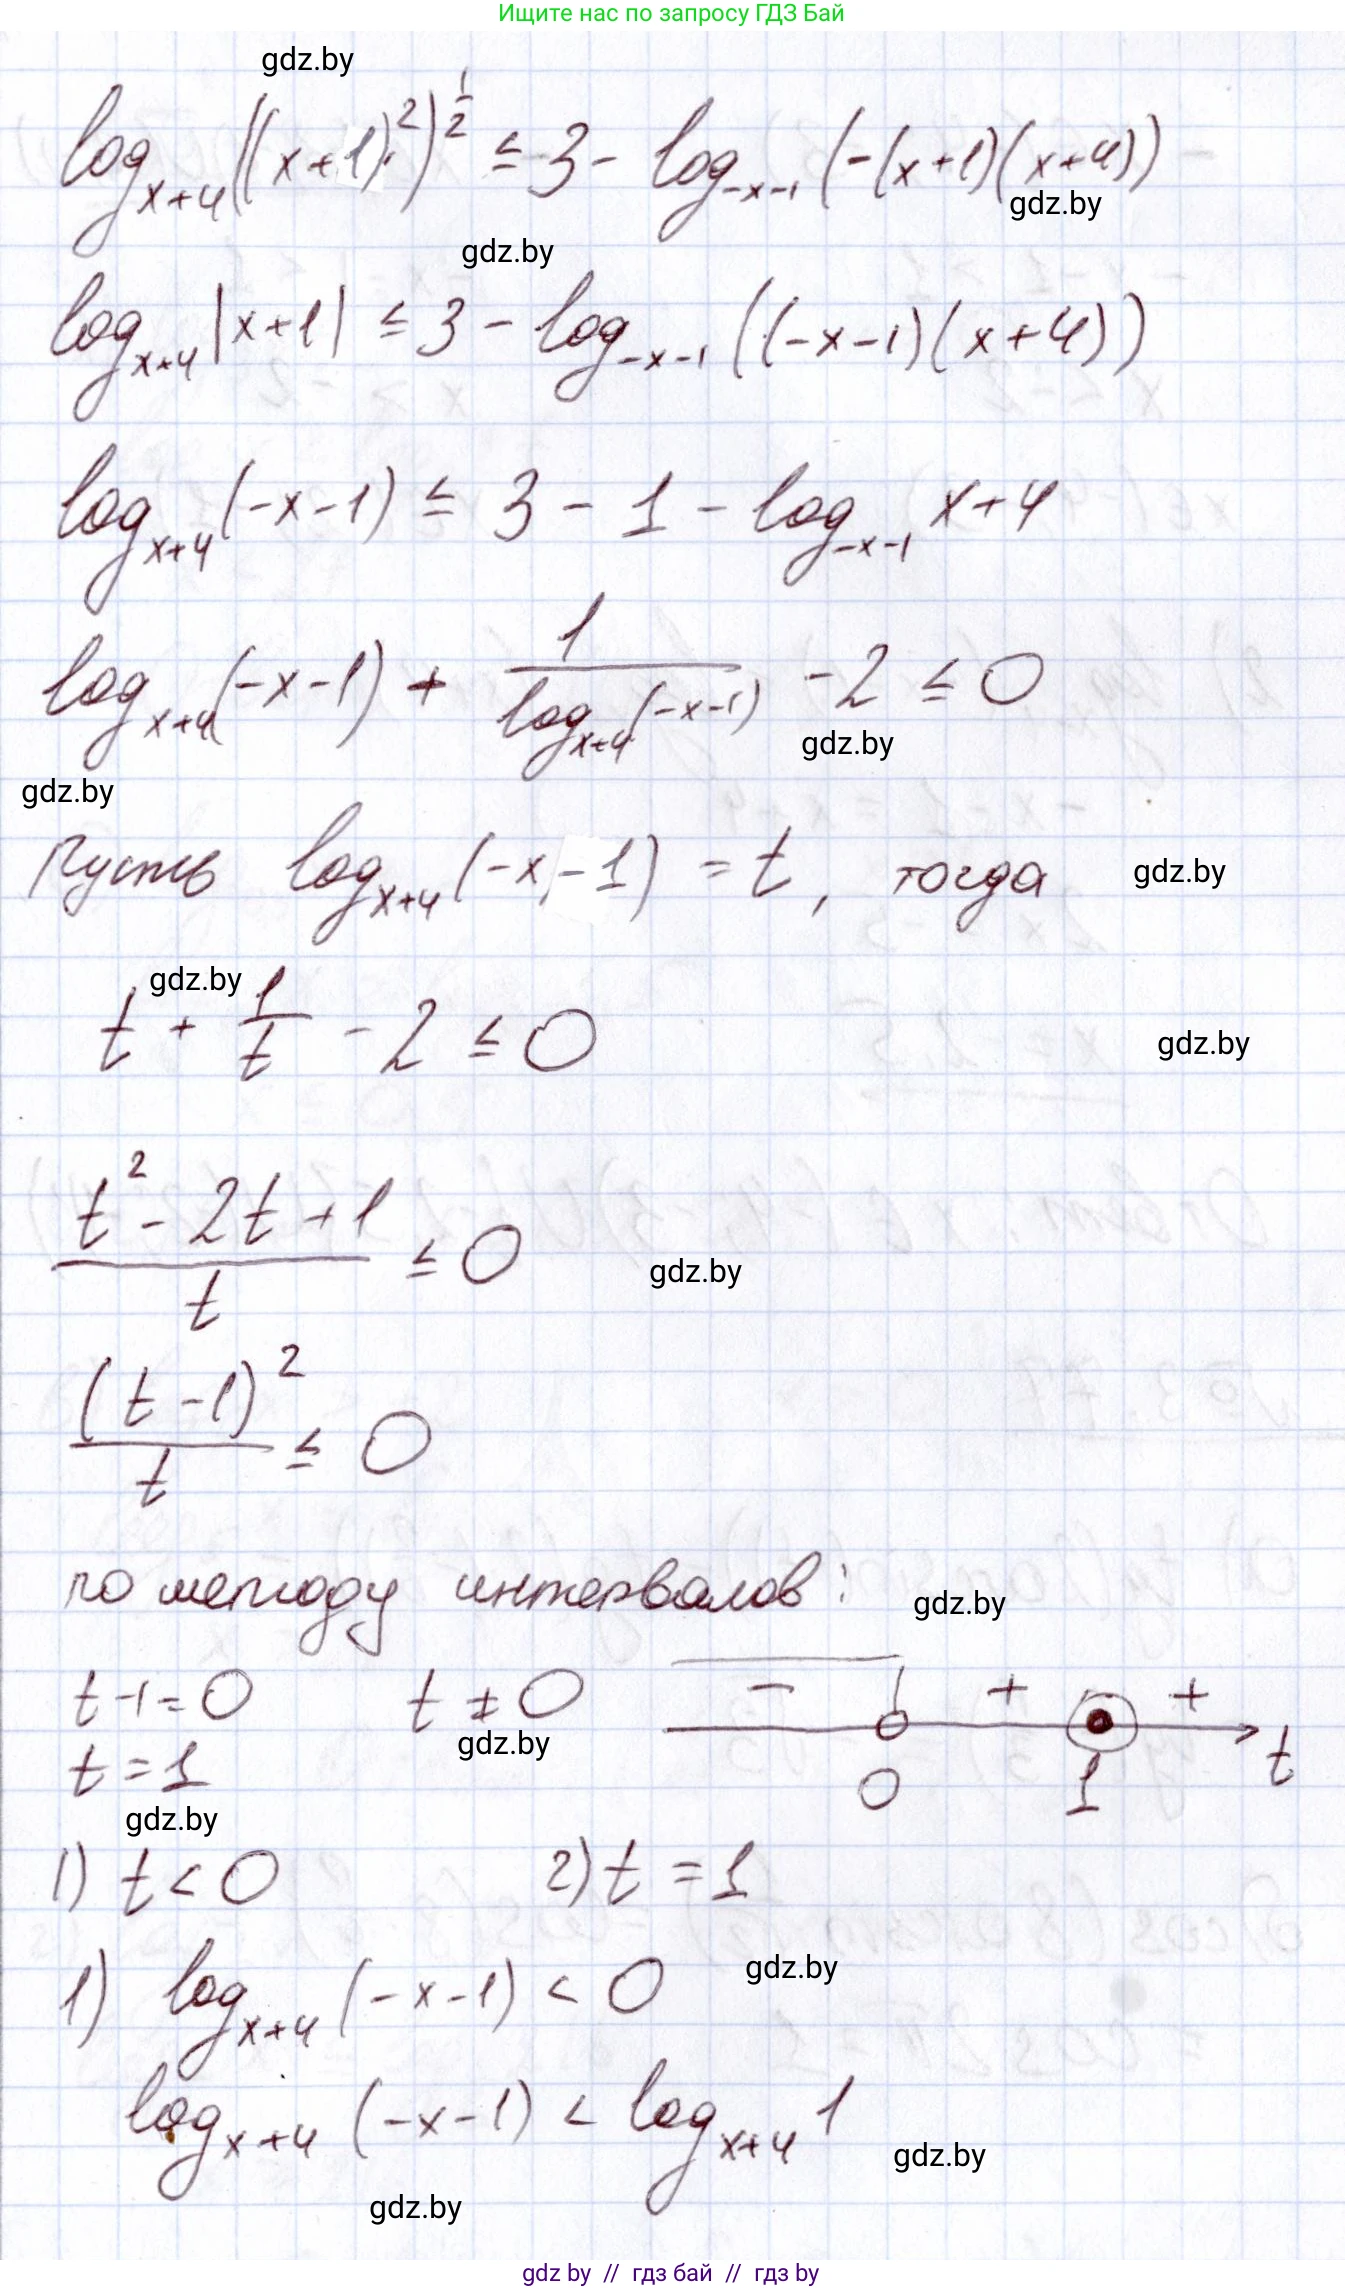 Ищите нас по запросу ГДЗ Бай
gdz.by
log_{x+4} ((x+1)^2)^{1/2} ≤ 3 - log_{-x-1} (-(x+1)(x+4))
gdz.by
gdz.by
log_{x+4} |x+1| ≤ 3 - log_{-x-1} ((-x-1)(x+4))
log_{x+4} (-x-1) ≤ 3 - 1 - log_{-x-1} x+4
log_{x+4} (-x-1) + 1/(log_{x+4} (-x-1)) - 2 ≤ 0
gdz.by
gdz.by
Пусть log_{x+4} (-x-1) = t, тогда
gdz.by
gdz.by
t + 1/t - 2 ≤ 0
gdz.by
(t^2 - 2t + 1)/t ≤ 0
gdz.by
(t-1)^2/t ≤ 0
по методу интервалов:
gdz.by
t-1=0 t ≠ 0 - + +
t = 1 gdz.by 0 1 t
gdz.by
1) t < 0 2) t = 1
1) log_{x+4} (-x-1) < 0
gdz.by
log_{x+4} (-x-1) < log_{x+4} 1
gdz.by
gdz.by
gdz by // гдз бай // гдз by